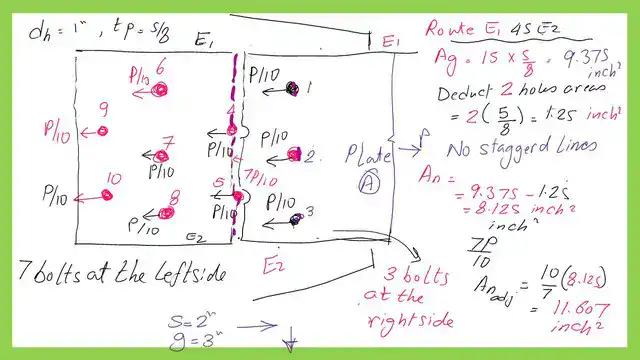 dh = 1", tp = 5/8
E1
E1
6
P/10
9
P/10
7
P/10
10
P/10
8
P/10
E2
4
P/10
5
P/10
7P/10
P/10
1
P/10
2
P/10
3
Plate
A
P
E2
7 bolts at the leftside
3 bolts
at the
rightside
s = 2"
g = 3"
Route E1 45 E2
Ag = 15 x 5/8 = 9.375
inch²
Deduct 2 holes areas
= 2 (5/8) = 1.25 inch²
No staggerd lines
An =
= 9.375 - 1.25
= 8.125 inch²
inch²
7P/10
An adj = 10/7 (8.125)
= 11.607
inch²